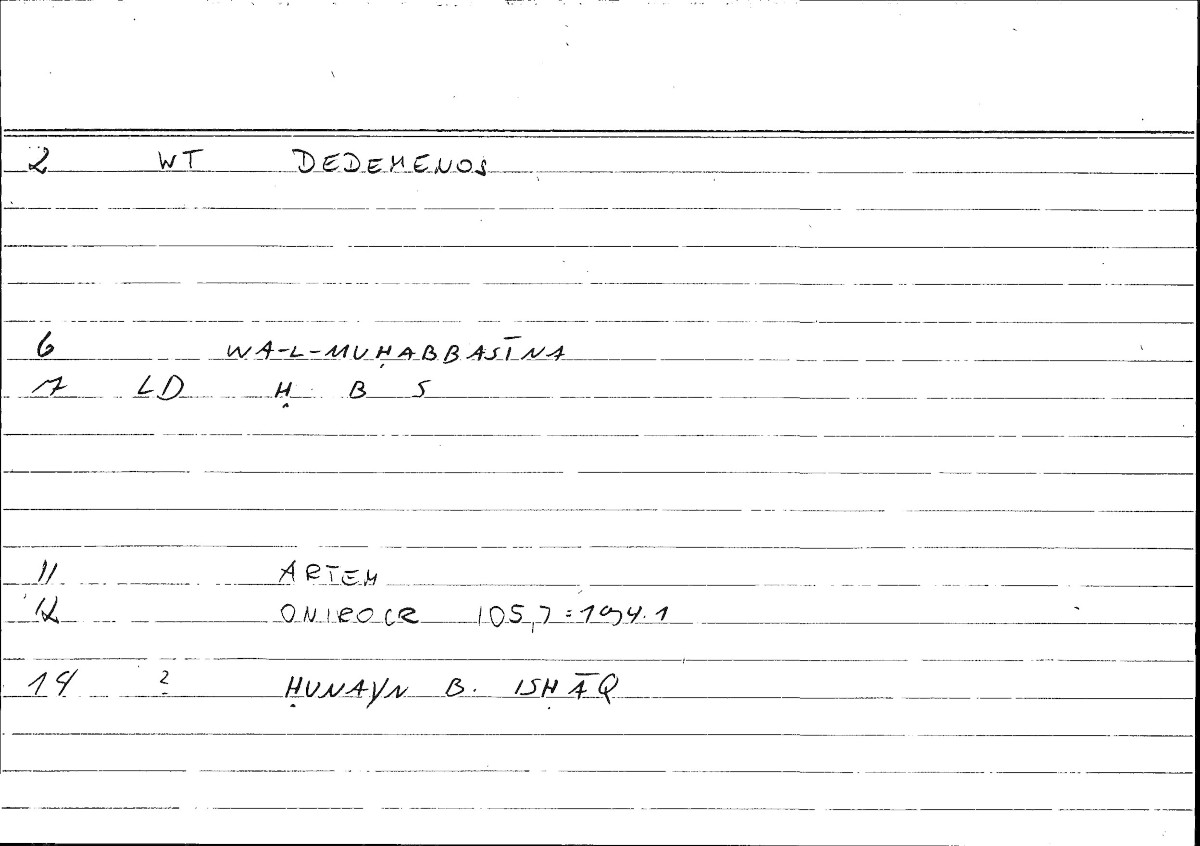 2 WT DEDEMENOS
6 WA-L-MUḤABBASĪNA
7 LD Ḥ B S
11 ARTEM
12 ONIROCR 105,7=194.1
14 2 ḤUNAYN B. ISḤĀQ